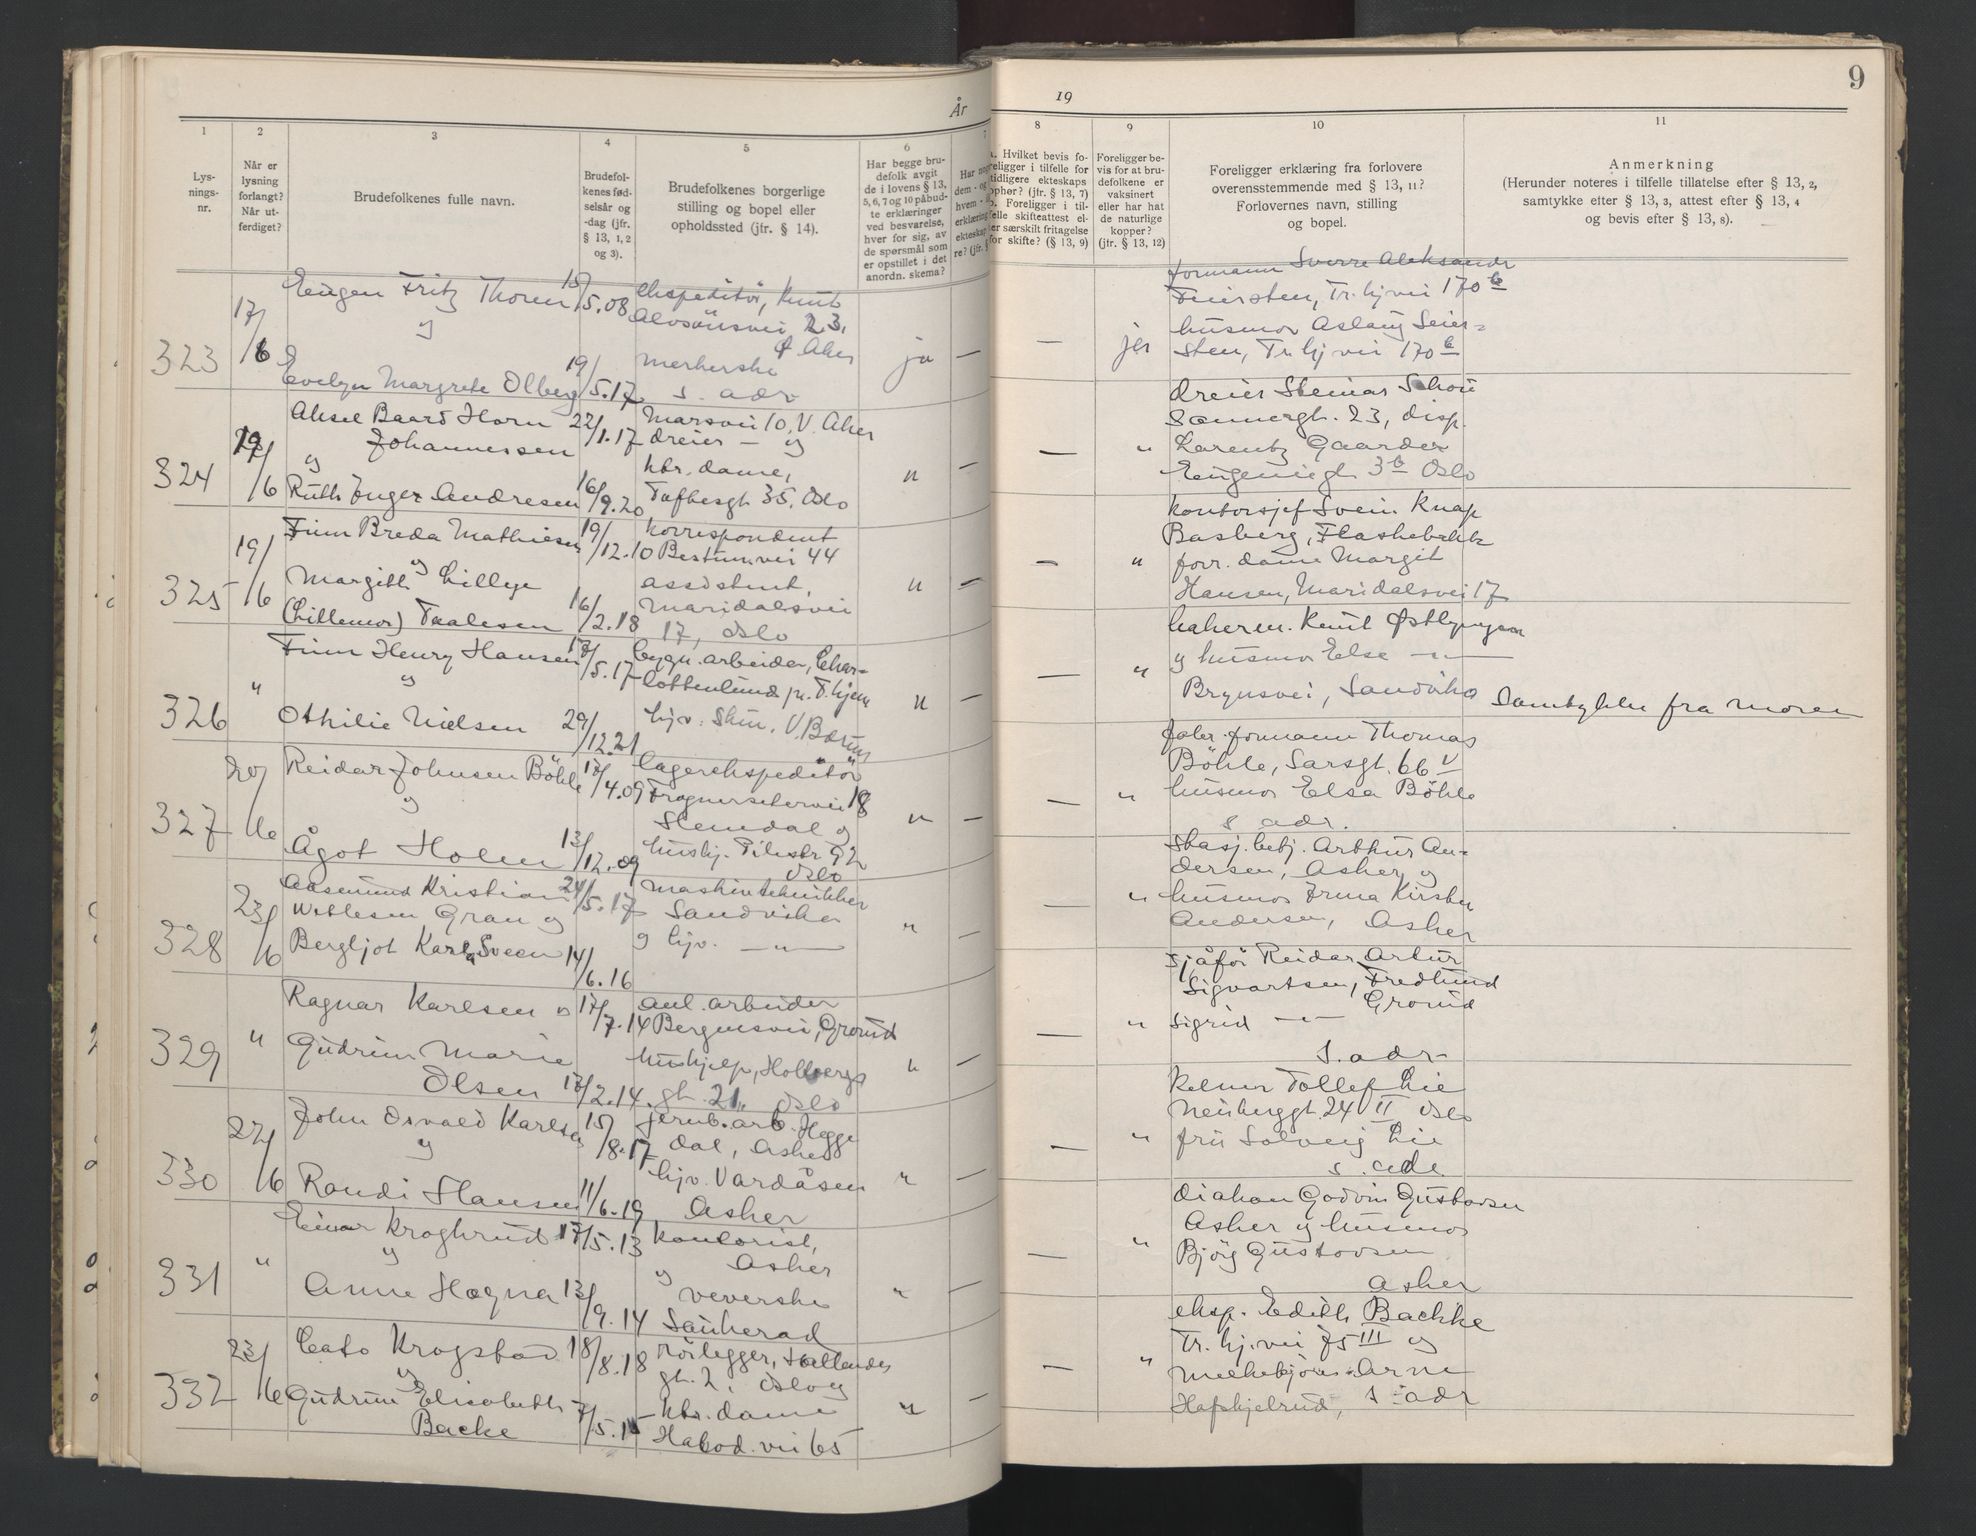 År
19
9
1
2
3
4
5
6
7
8
9
10
11
Lys-
nings-
nr.
Når er
lysning
forlangt?
Når ut-
ferdiget?
Brudefolkenes fulle navn.
Brudefol-
kenes fød-
selsår og
-dag (jfr.
§ 13, 1, 2
og 3).
Brudefolkenes borgerlige
stilling og bopel eller
opholdssted (jtr. § 14).
Har begge bru-
defolk avgit
de i lovens § 13,
5, 6, 7 og 10 påbud-
te erklæringer
ved besvarelse,
hver for sig, av
de spørsmål som
er opstillet i det
anordn. skema?
Hvilket bevis fo-
religger i tilfelle for
tidligere ekteskaps
ophør? (jtr. § 13, 7)
Foreligger i til-
felle skifteattest el-
ler særskilt fritagelse
for skifte? (§ 13, 9)
Foreligger be-
vis for at bru-
defolkene er
vaksinert
eller har hat
de naturlige
kopper?
(jtr. § 13, 12)
Foreligger erklæring fra forlovere
overensstemmende med § 13, 11?
Forlovernes navn, stilling
og bopel.
Anmerkning
(Herunder noteres i tilfelle tillatelse efter § 13, 2,
samtykke etter § 13, 3, attest efter § 13, 4
og bevis efter § 13, 8).
323
17/6
Eugen Fritz Thoren
15/5.08
ekspeditör, Knut
Alvsönsvei 23,
og
Evelyn Margrete Olberg
19/5.17
s. adr
ja —
—
ja
formann Sverre Aleksandr
Tr. hj vei 170 b
husmor Aslaug Seier-
sten, Tr. hj vei 170 b
324
/6
Aksel Baard Horn
Johannessen
22/1.17
Marsvei 10, V. Aker
dreier — og
og
Ruth Inger Andresen
16/9.20
ktr. dame,
Toftesgt 35, Oslo
" —
—
"
dreier Steinar Schou
Sannergt. 23, disp.
Lorentz Gaarder
Eugeniegt 3 b Oslo
325
19/6
Finn Breda Mathiesen
19/12.10
korrespondent
Bestumvei 44
og
Margith Lillye
(Lillemor) Paulesen
16/2.18
assistent,
Maridalsvei
17, Oslo
" —
—
"
kontorsjef Svein Knap
Basberg, Flaskebekk
forr. dame Margit
Hansen, Maridalsvei 17
326
"
Finn Henry Hansen
5.17
bygn. arbeider, Char-
lottenlund pr. T.hjem
og
Othilie Nielsen
29/12.21
hjv. Skui. V. Bærum
" —
—
"
Knut Østbyngen
og husmor Else — " —
Brynsvei, Sandvika
Samtykke fra moren
327
20/6
Reidar Johnsen Böhle
4.09
lagerekspeditör
Frognersetervei 18
Slemdal og
og
Ågot Holen
13/12.09
hushj. Pilestr 92
Oslo
" —
—
"
formann Thomas
Böhle, Sarsgt. 66 V
husmor Elsa Böhle
s adr.
328
23/6
Aasmund Kristian
Wetlesen Gran og
24/5.17
maskintekniker
Sandvika
Bergljot Karla Sveen
14/6.16
og hjv. — " —
" —
—
"
stasj. betj. Arthur An-
dersen, Asker og
husmor Irma Kirsten
Andersen, Asker
329
"
Ragnar Karlsen og
17/7.14
anl. arbeider
Bergensvei, Grorud
Gudrun Marie
Olsen
2.14.
hushjelp, Holbergs
gt. 21, Oslo
" —
—
"
sjåför Reidar Artur
Sigvartsen, Fredlund
Grorud
Sigrid — " —
s. adr-
330
/6
John Osvald Karlsen
15/8.17
jernb. arb. Hegge
dal, Asker
og
Randi Hansen
11/6.19
hjv. Vardåsen
Asker
" —
—
"
Kelner Tollef Lie
Neuberggt. 24 II Oslo
fru Solveig Lie
s. adr
331
"
Einar Kroghrud
17/5.13
kontorist,
Asker
og
Anne Hægna
9.14
og
veverske
Sauherad
" —
—
"
diakon Godvin Gustavsen
Asker og husmor
Bjørg Gustavsen
Asker
332
23/6
Cato Krogstad
18/8.18
rörlegger,
gt. 2, Oslo og
og
Gudrun Elisabeth
Backe
ktr. dame
vei 65
" —
—
"
eksp. Edith Backke
Tr. hj. vei 75 III og
Arne
Hafskjelrud, s. adr